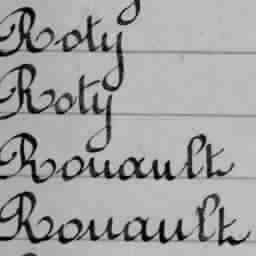 Roty
Roty
Rouault
Rouault